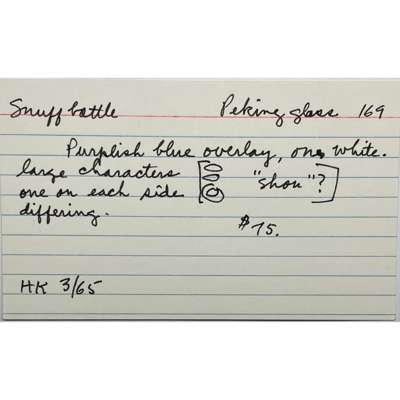 Snuff bottle Peking glass 169
Purplish blue overlay, on white.
large characters ["shou"?]
one on each side
differing.
$75.
HK 3/65